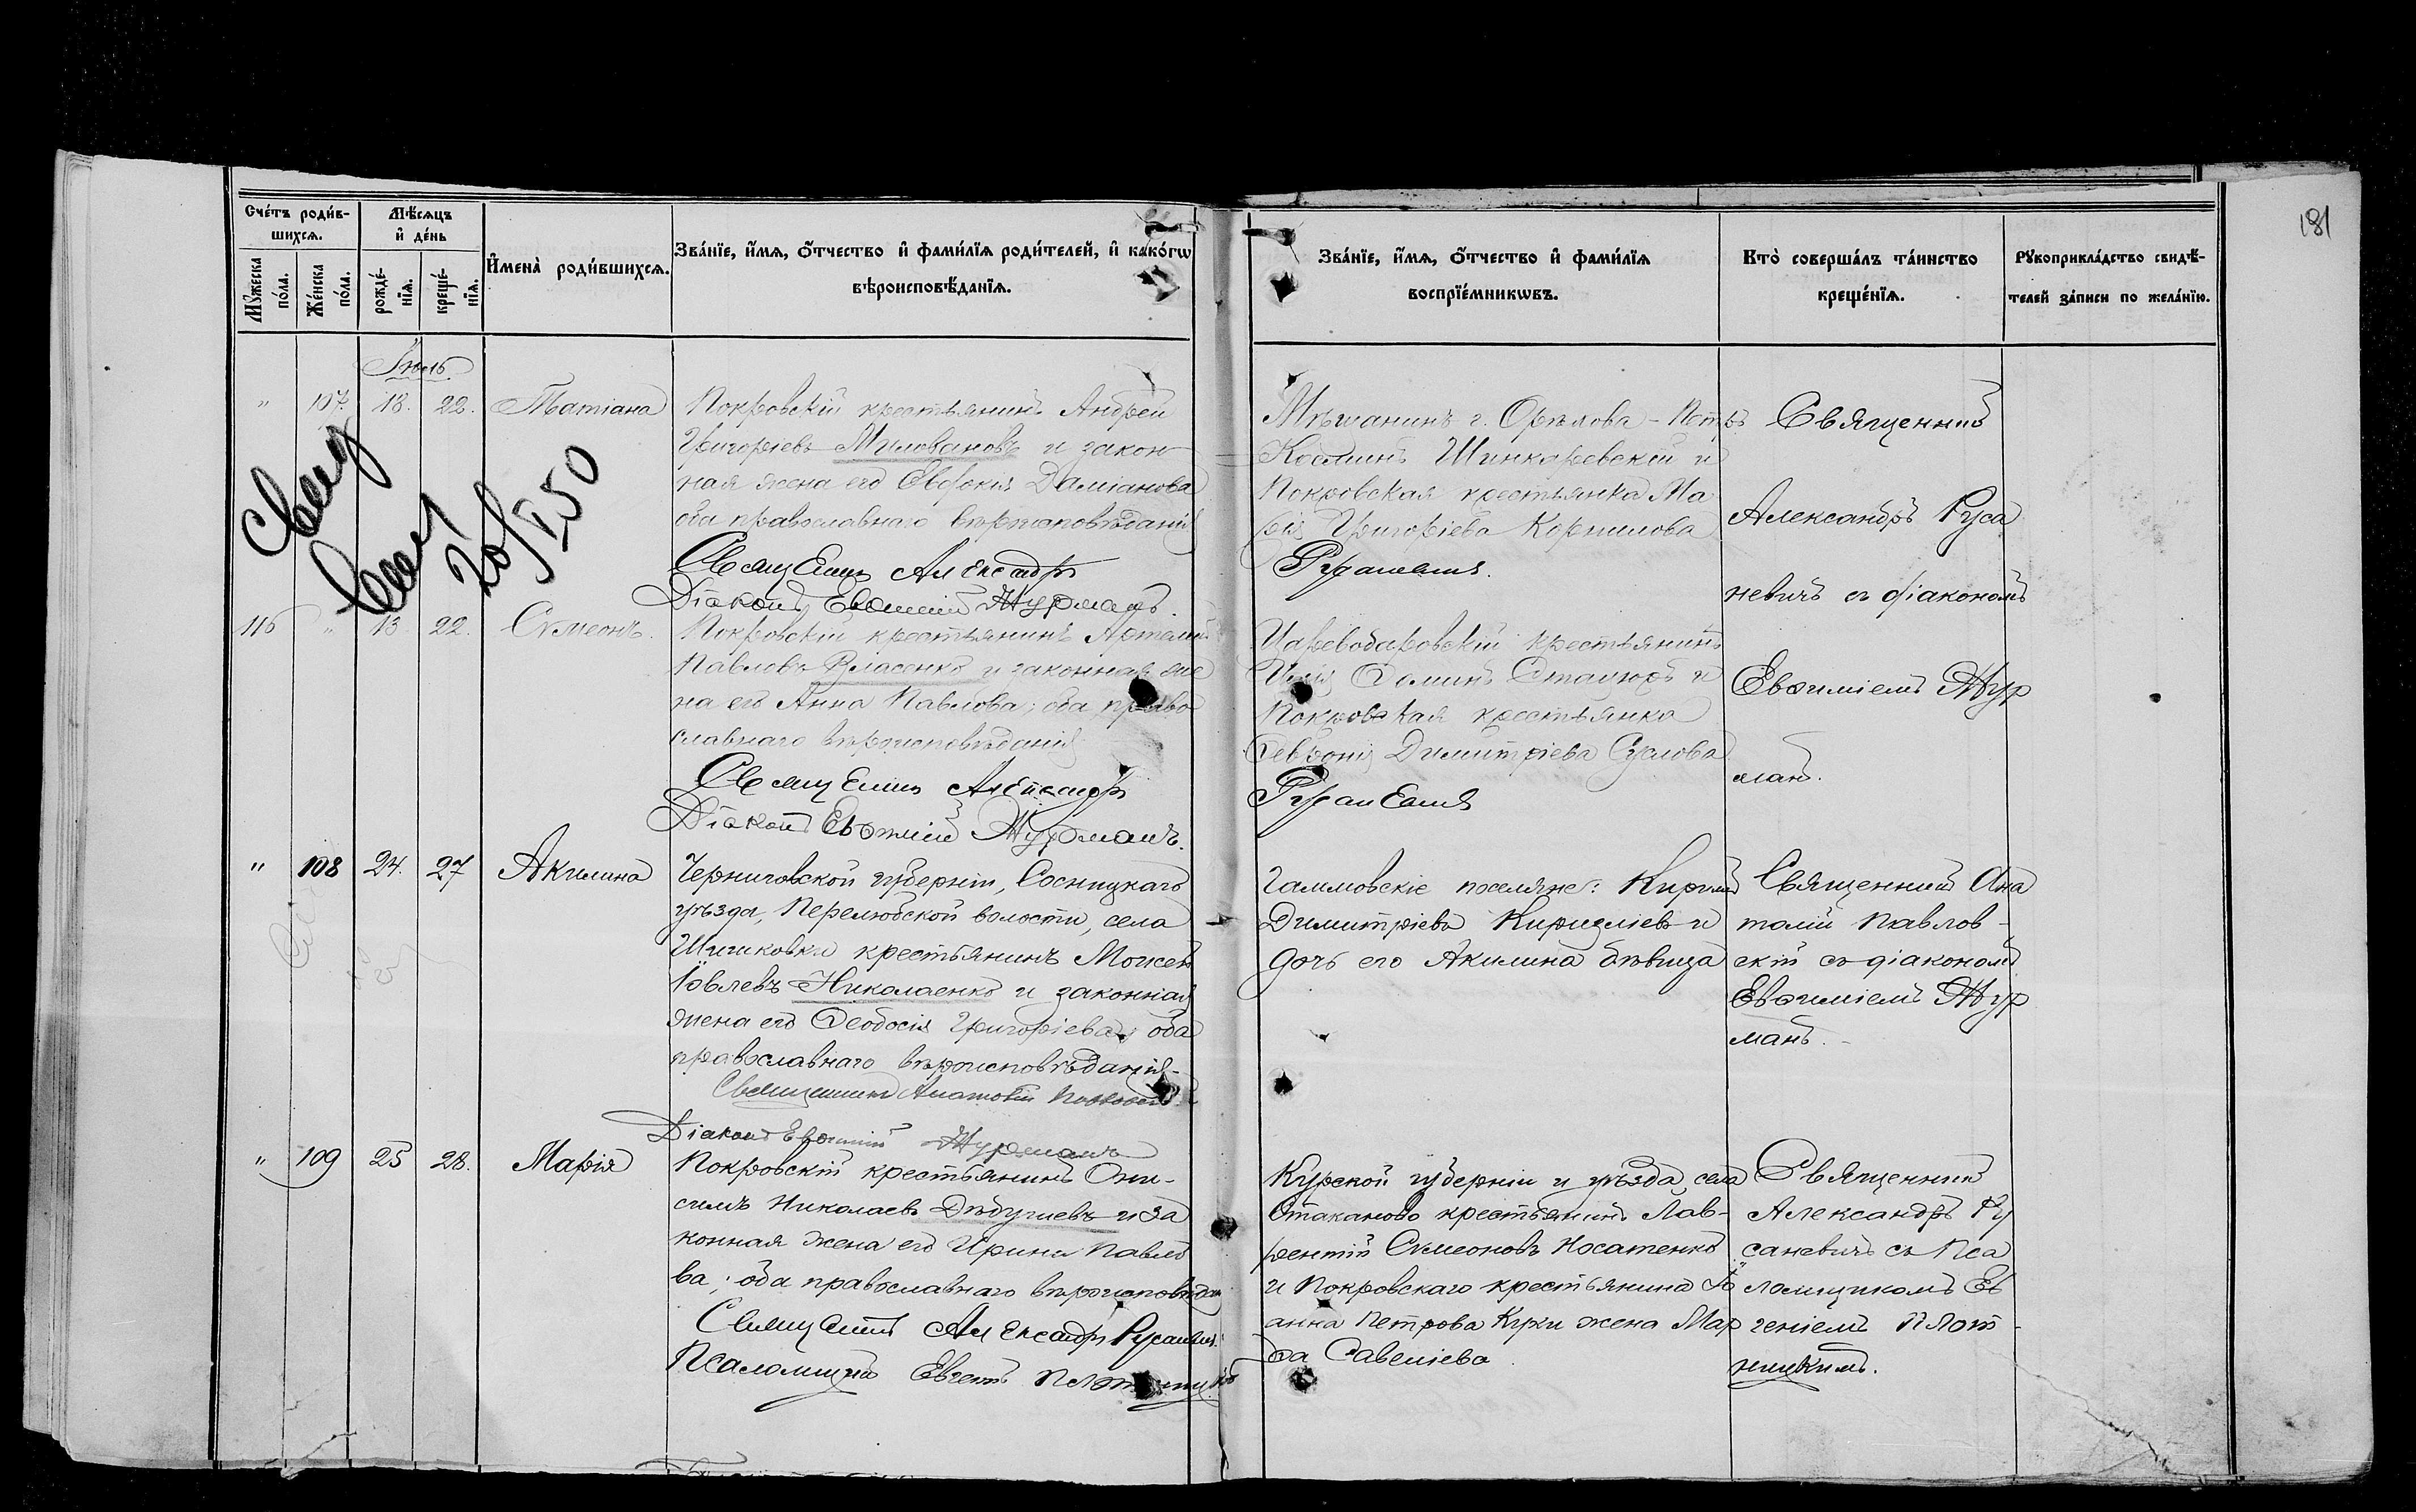 181
Счетъ родив-
шихся.
Мѣсяцъ
и день
Мужеска
пола.
Женска
пола.
рожде-
нїя.
креще-
нїя.
Имена родившихся.
Званїе, имя, отчество и фамилїя родителей, и какогω
вѣроисповѣданїя.
Званїе, имя, отчество и фамилїя
воспрїемникωвъ.
Кто совершалъ таинство
крещенїя.
Рукоприкладство свидѣ-
телей записи по желанїю.
Іюль
" 107. 18. 22. Татіана
Покровскій крестьянинъ Андрей
Григоріевъ Миловановъ и закон-
ная жена его Евдокія Даміанова
оба православнаго вѣроисповѣданія
Священникъ Александръ
Діаконъ Евѳимій Журманъ.
Мѣщанинъ г. Орѣхова - Петръ
Косминъ Шинкаревскій и
Покровская крестьянка Ма
рія Григоріева Корнилова
Русаневичъ.
Священникъ
Александръ Руса
невичъ съ діакономъ
Евѳиміемъ Жур
манъ.
20/I 50
116 " 13. 22. Сѵмеонъ.
Покровскій крестьянинъ Артемій
Павловъ Власенко и законная же
на его Анна Павлова; оба право
славнаго вѣроисповѣданія
Священникъ Александръ
Діаконъ Евѳимій Журманъ.
Цареводаровскій крестьянинъ
Ѳоминъ и
Покровская крестьянка
Февронія Димитріева Суслова
Русаневичъ
" 108 24. 27 Акилина
Черниговской губерніи, Сосницкаго
уѣзда, Перелюбской волости, села
Шишковки крестьянинъ Моисей
Іовлевъ Николаенко и законная
жена его Ѳеодосія Григоріева; оба
православнаго вѣроисповѣданія.
Священникъ Анатолій Павловскій
Діаконъ Евѳимій Журманъ
поселяне: Кирилъ
Димитріевъ Кириліевъ и
дочь его Акилина дѣвица
Священникъ Ана
толій Павлов-
скій съ діакономъ
Евѳиміемъ Жур
манъ.
" 109 25 28. Марія
Покровскій крестьянинъ Они-
симъ Николаевъ и за
конная жена его Ирина Павло
ва; оба православнаго вѣроисповѣдан
Священникъ Александръ Русаневичъ
Псаломщикъ Евгеній Плотницкій
Курской губерніи и уѣзда, села
Стаканово крестьянинъ Лав-
рентій Сѵмеоновъ Носатенко
и Покровскаго крестьянина Іо
анна Петрова Куки жена Мар
ѳа Савеліева
Священникъ
Александръ Ру
саневичъ съ Пса
ломщикомъ Ев
геніемъ Плот-
ницкимъ.